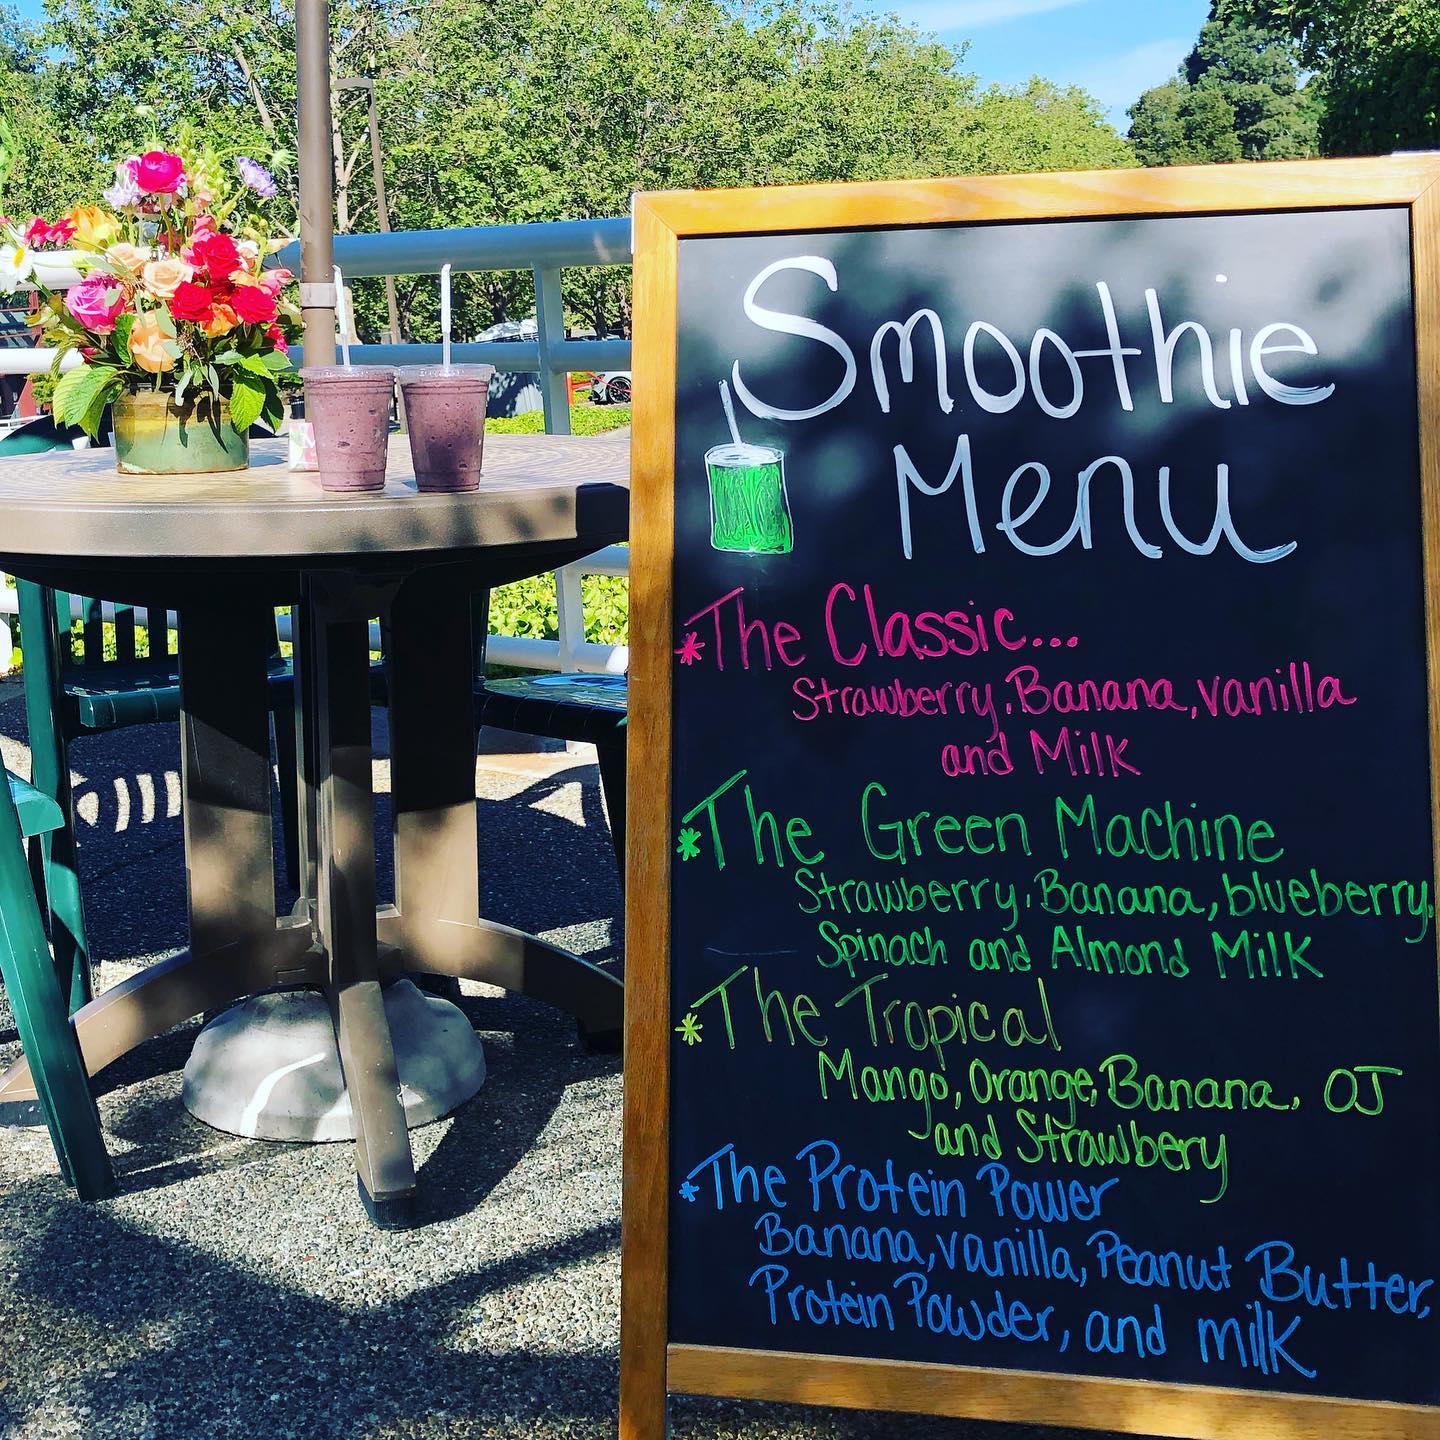 Smoothie
Menu
*The Classic...
Strawberry, Banana, vanilla
and Milk
*The Green Machine
Strawberry, Banana, blueberry,
Spinach and Almond Milk
*The Tropical
Mango, Orange, Banana, OJ
and Strawbery
*The Protein Power
Banana, vanilla, Peanut Butter,
Protein Powder, and milk